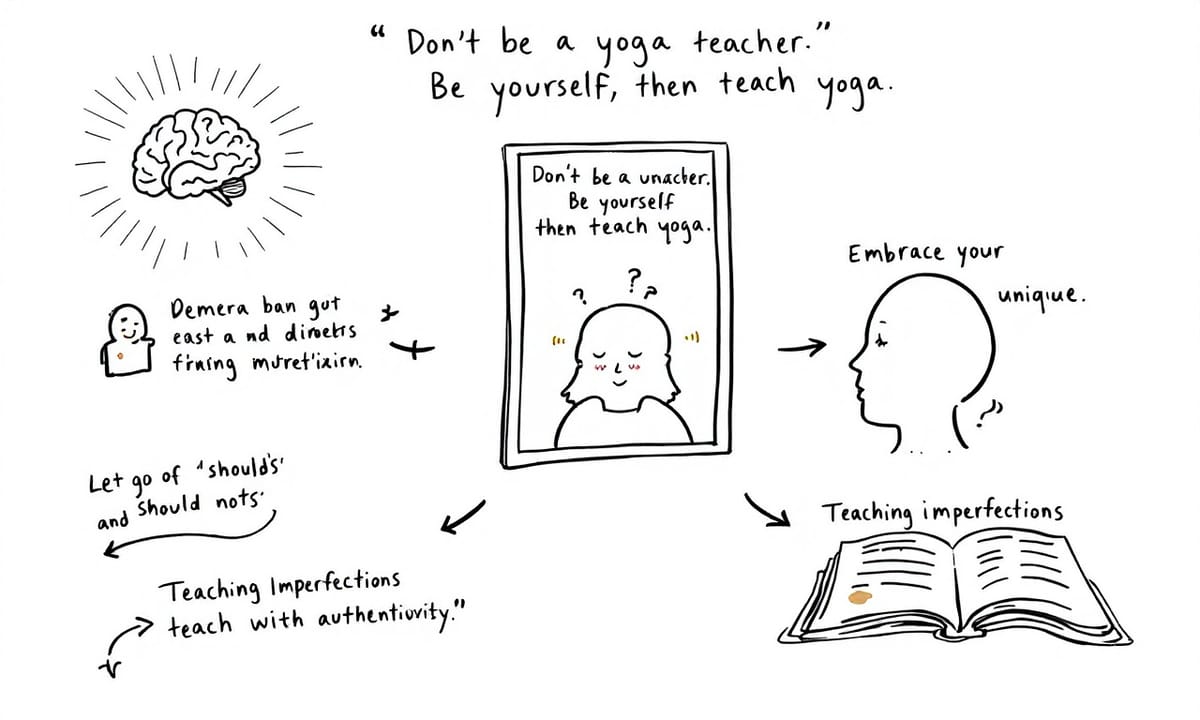 “ Don't be a yoga teacher.”
Be yourself, then teach yoga.
Don't be a unacber.
Be yourself
then teach yoga.
Embrace your
uniqiue.
Demera ban gut
east a nd dimekrs
Let go of "should's'
and should nots.
Teaching imperfections
Teaching Imperfections
teach with authentiovity."